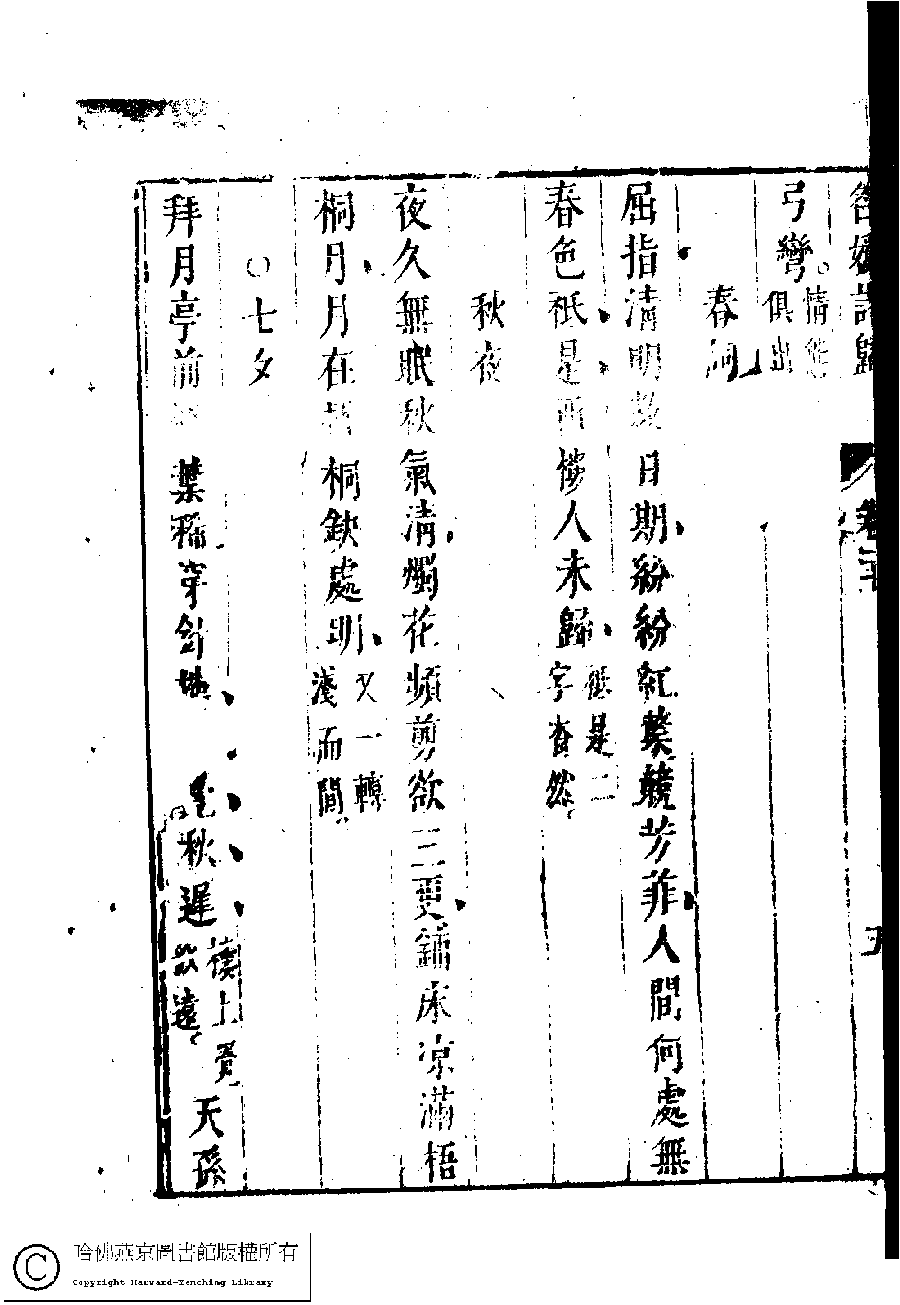 名媛詩歸 卷二十 五
弓彎。情態俱出
春詞
屈指清明數日期紛紛紅葉競芳菲人間何處無
春色祇是西樓人未歸祇是二字杳然
秋夜
夜久無眠秋氣清燭花頻剪欲三更鋪床凉滿梧
桐月月在梧桐缺處明又一轉淺而閒
○七夕
拜月亭前 葉稀穿針樓 覺秋遲 樓上覺 遠天孫
哈佛燕京圖書館版權所有
Copyright Harvard-Yenching Library